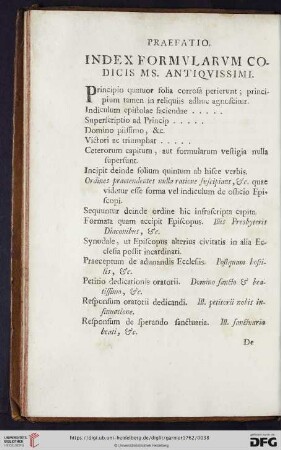 PRAEFATIO.
INDEX FORMVLARVM CO-
DICIS MS. ANTIQVISSIMI.
Principio quatuor folia corrosa perierunt; princi-
pium tamen in reliquiis adhuc agnoscitur.
Indiculum epistolae faciendae . . . . .
Superscriptio ad Princip . . . . .
Domino piissimo, &c.
Victori ac triumphat . . . . .
Ceterorum capitum, aut formularum vestigia nulla
supersunt.
Incipit deinde folium quintum ab hisce verbis.
Ordines praetendaliter nulla ratione suscipiant, &c. quae
videtur esse forma vel indiculum de officio Epi-
scopi.
Sequuntur deinde ordine hic infrascripta capita.
Formata quam accipit Episcopus. Illis Presbyteris
Diaconibus, &c.
Synodale, ut Episcopus alterius civitatis in alia Ec-
clesia possit incardinari.
Praeceptum de adunandis Ecclesiis. Postquam hosti-
lis, &c.
Petitio dedicationis oratorii. Domino sancto & bea-
tissimo, &c.
Responsum oratorii dedicandi. Ill. petitorii nobis in-
sinuatione.
Responsum de sperando sanctuaria. Ill. sanctuaria
beati, &c.
De
UNIVERSITÄTS-
BIBLIOTHEK
HEIDELBERG
https://digi.ub.uni-heidelberg.de/diglit/garnier1762/0038
© Universitätsbibliothek Heidelberg
gefördert durch die
DFG